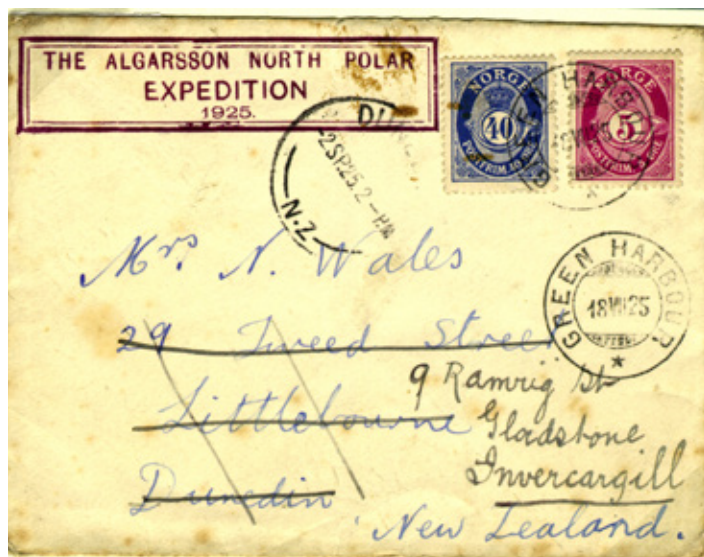 THE ALGARSSON NORTH POLAR
EXPEDITION
1925.
NORGE
40
NORGE
5
N.Z.
-2SP.25.2-PM
GREEN HARBOUR
18 VII 25
Mrs N. Wales
29 Tweed Street
Littlebourne
Dunedin
9 Ramrig St
Gladstone
Invercargill
New Zealand.